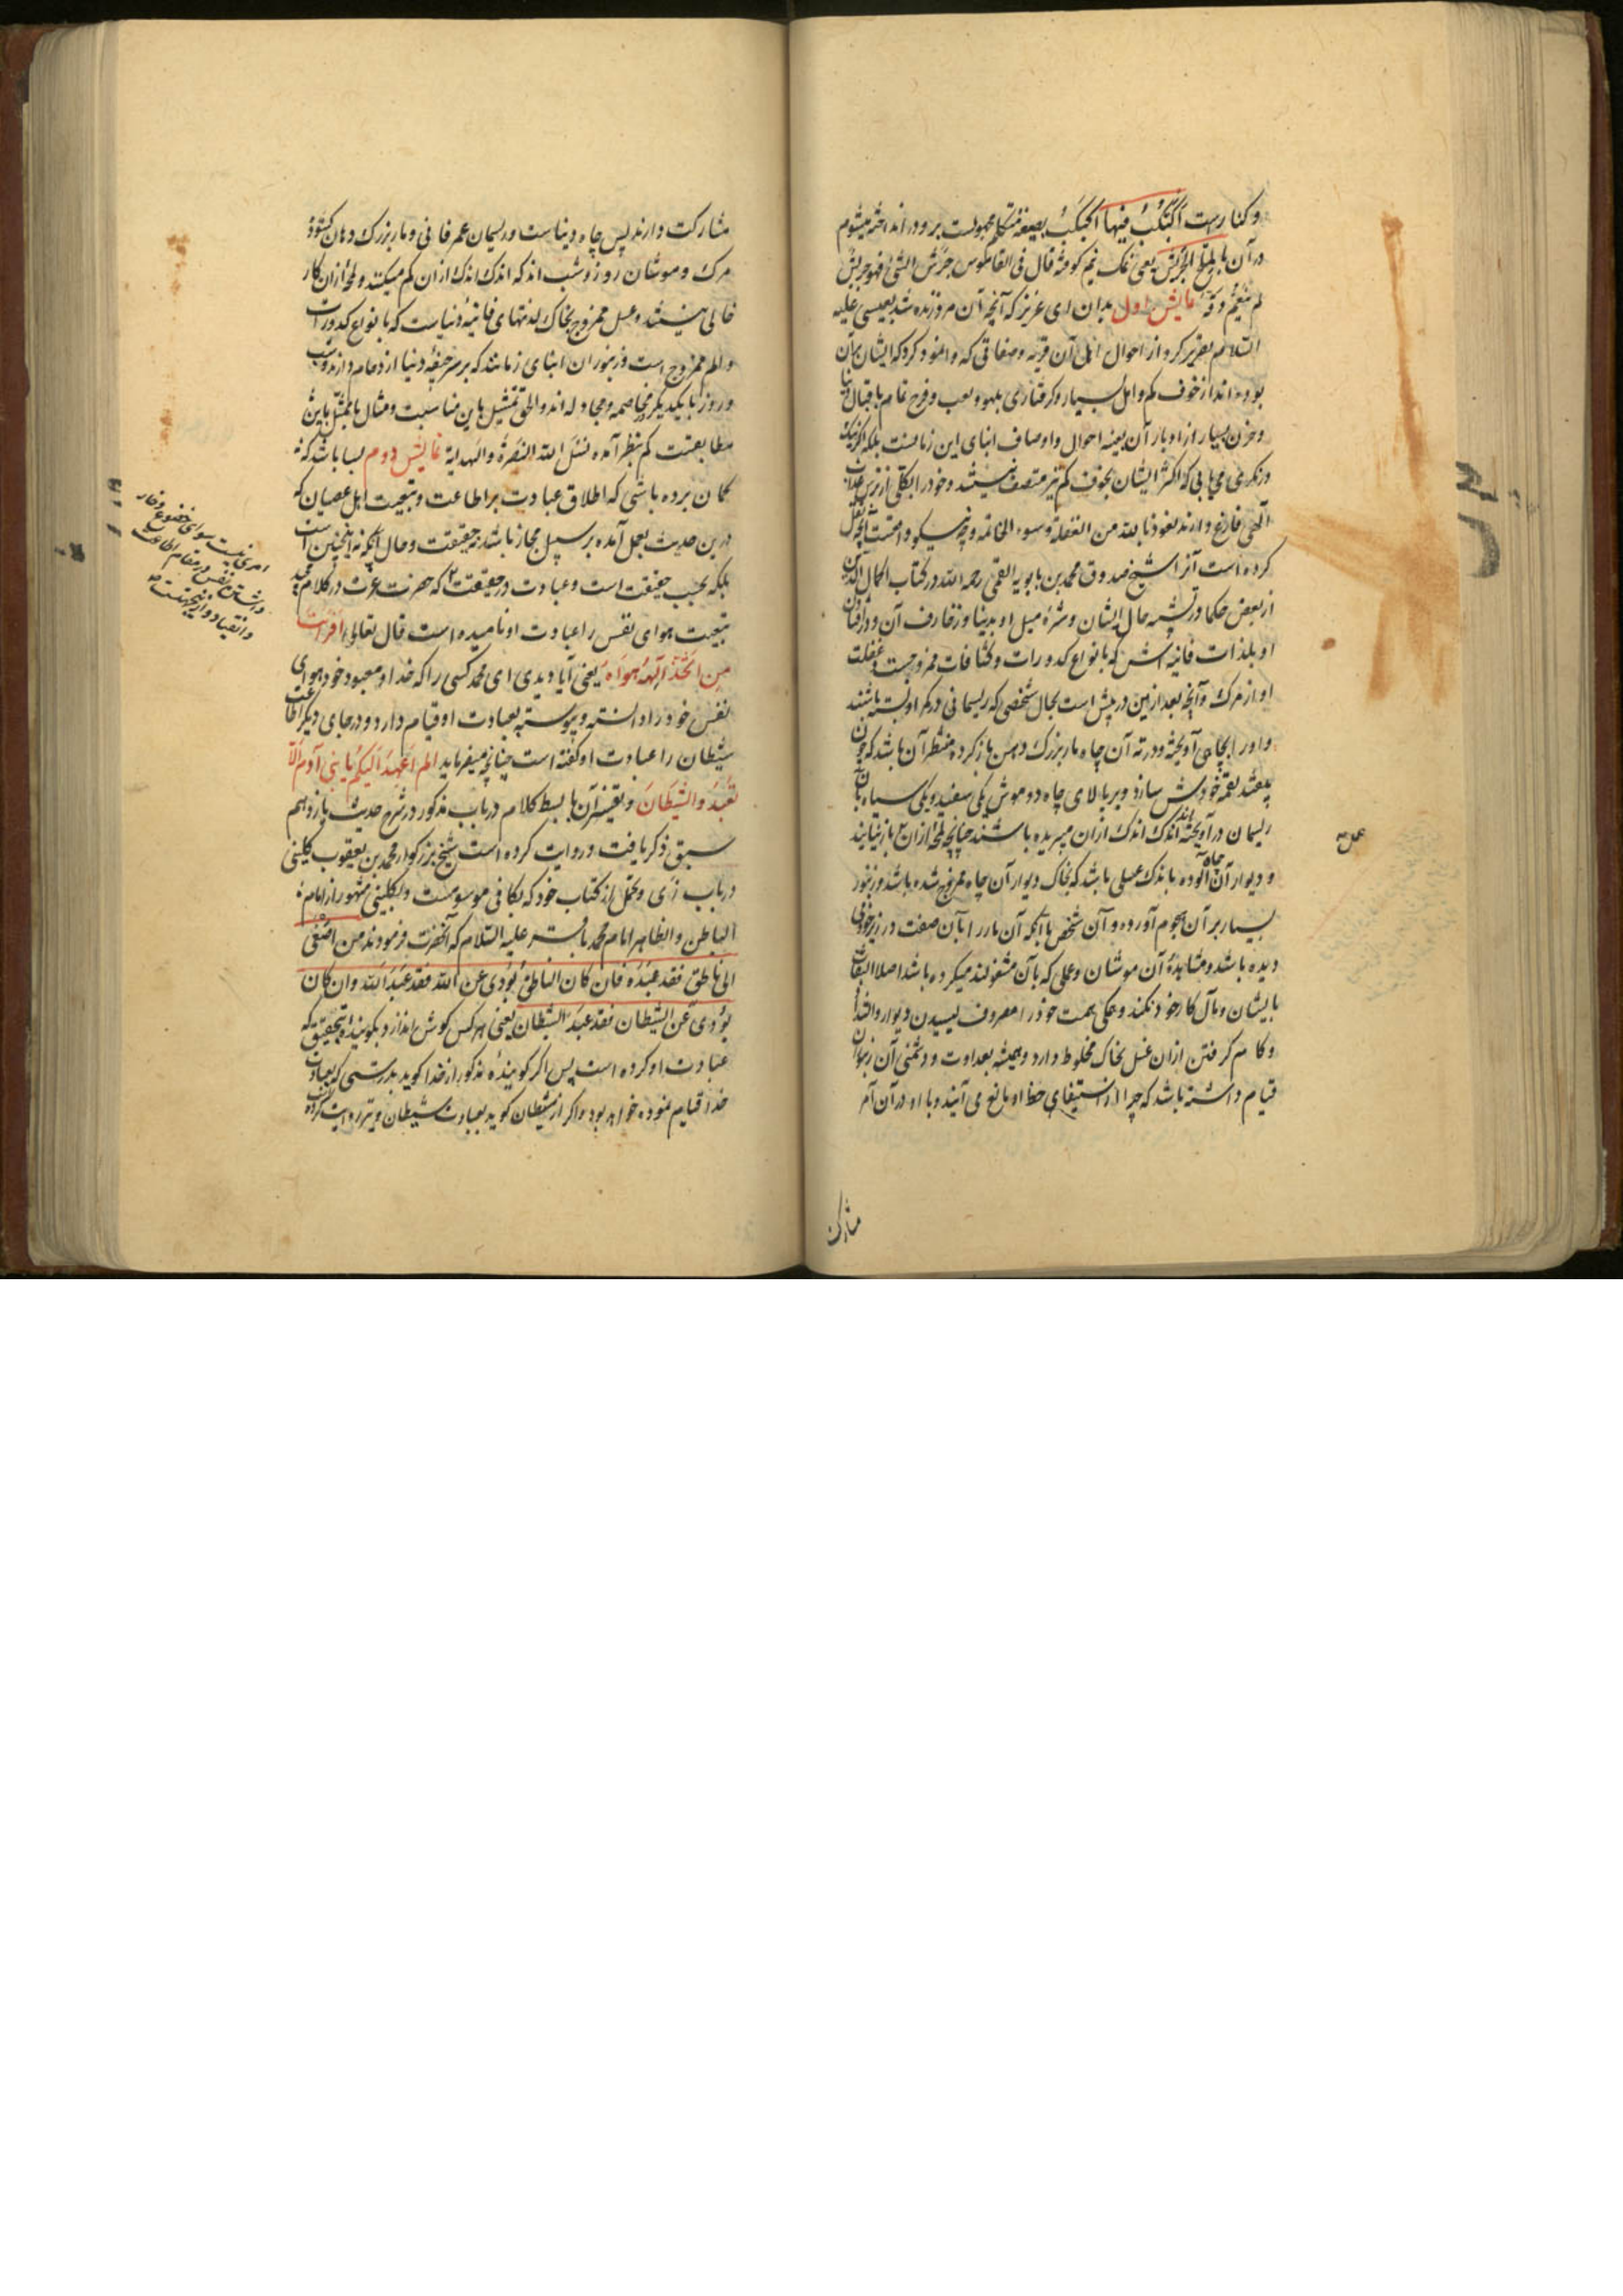 و کنار رست اُکَبکَبُ فیها اُکبکب بصیغه متکلم مجهولست بر و در انداخته میشوم
در آن بالملح الجریش یعنی نمک نیم کوفته قال فی القاموس جرش الشیٔ فهو جریش
لم ینعم دقه نمایش اول بدان ای عزیز که آنچه آن مرد زنده شد بعیسی علیه
السلام تقریر کرد از احوال اهل آن قریه و صفاتی که وانمود کرد که ایشان بآن
بوده اند از خوف کم و امل بسیار و گرفتاری بلهو و لعب و فرح تمام باقبال دنیا
و حزن بسیار از ادبار آن بعینه احوال و اوصاف ابنای این زمانست بلکه اکر نیک
درنگری می یابی که اکثر ایشان بخوف کم نیز متصف نیستند و خود را بکلی از ترس عذاب
الهی فارغ دارند نعوذ بالله من الغفلة و سوء الخاتمه و چه نیکو و احسنت آنچه نقل
کرده است آنرا شیخ صدوق محمد بن بابویه القمی رحمه الله در کتاب اکمال الدین
از بعض حکما در تشبیه حال ایشان و شره میل او بدنیا و زخارف آن و
او بلذات فانیه اش که بانواع کدورات و کثافات ممزوجست و غفلت
او از مرک و آنچه بعد ازین در پیش است بحال شخصی که ریسمانی در کمر او بسته باشند
و او را بچاهی آویخته و در ته آن چاه مار بزرک دهن باز کرده منتظر آن باشد که چون
بیفتد لقمه خودش سازد و بر بالای چاه دو موش یکی سفید و یکی سیاه بآن
ریسمان در آویخته اندک اندک از آن میبریده باشند چنانچه لمحهٔ از آن باز نیایند
و دیوار آن چاه آلوده باندک عسلی باشد که بخاک دیوار آن چاه ممزوج شده باشد و زنبور
بسیار بر آن هجوم آورده و آن شخص با آنکه آن مار را بآن صفت در زیر خود
دیده باشد و مشاهدهٔ آن موشان و عملی که بآن مشغولند میکرده باشد اصلا التفات
بایشان و مآل کار خود نکند و همکی همت خود را مصروف لیسیدن دیوار
و کام کرفتن از آن عسل بخاک مخلوط دارد و همیشه بعداوت و دشمنی آن زنبوران
قیام داشته باشد که چرا از استیفای حظ او مانع می آیند و با او در آن امر
مشارکت
عمل
مشارکت دارند پس چاه دنیاست و ریسمان عمر فانی و مار بزرک دهان کشودهٔ
مرک و موشان روز و شب اند که اندک اندک از آن کم میکنند و لمحهٔ از آن کار
خالی نیستند و عسل ممزوج بخاک لذتهای فانیهٔ دنیاست که بانواع کدورات
و الم ممزوج است و زنبوران ابنای زمانند که بر سر جیفهٔ دنیا ازدحام دارند و شب
و روز با یکدیگر در مخاصمه و مجادله اند و الحق تمثیل باین مناسبت و مثال بامثل باین
مطابقت کم بنظر آمده نسئل الله النصرة و الهدایه نمایش دوم بسا باشد که
کمان برده باشی که اطلاق عبادت بر اطاعت و تبعیت اهل عصیان که
درین حدیث بعمل آمده بر سبیل مجاز باشد نه حقیقت و حال آنکه نه اینچنین است
بلکه بحسب حقیقت است و عبادت در حقیقت که حضرت عزت در کلام مجید
تبعیت هوای نفس را عبادت او نامیده است قال تعالی افرایت
من اتخذ الهه هواه یعنی آیا دیدی ای محمد کسی را که خدا و معبود خود هوای
نفس خود را دانسته و پیوسته بعبادت او قیام دارد و در جای دیگر اطاعت
شیطان را عبادت او کفته است چنانچه میفرماید الم اعهد الیکم یا بنی آدم الا
تعبدوا الشیطان و تفسیر آن با بسط کلام درباب مذکور در شرح حدیث یازدهم
سبق ذکر یافت و روایت کرده است شیخ بزرگوار محمد بن یعقوب کلینی
در باب از کتاب خود که بکافی موسومست و بکلینی مشهور از امام
الباطن و الظاهر امام محمد باقر علیه السلام که آنحضرت فرمودند من اصغی
الی ناطق فقد عبده فان کان الناطق یؤدی عن الله فقد عبد الله و ان کان
یؤدی عن الشیطان فقد عبد الشیطان یعنی هر کس کوش اندازد بکویندهٔ بتحقیق که
عبادت او کرده است پس اکر کویندهٔ مذکور از خدا کوید بدرستی که بعبادت
خدا قیام نموده خواهد بود و اکر از شیطان کوید بعبادت شیطان
امری نیست سوای خضوع و خاکساری
داشتن نفس در مقام اطاعت
و انقیاد و ازینجهتست